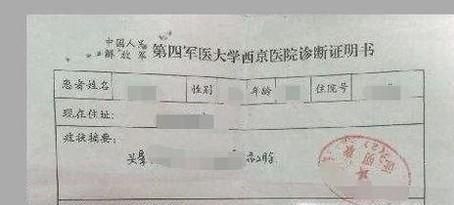 中国人民
解放军 第四军医大学西京医院诊断证明书
患者姓名 性别 年龄 住院号
现在住址:
症状摘要:
头晕
证明章